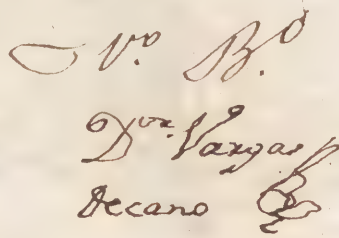 V.º B.º
D.or Vargas
Decano